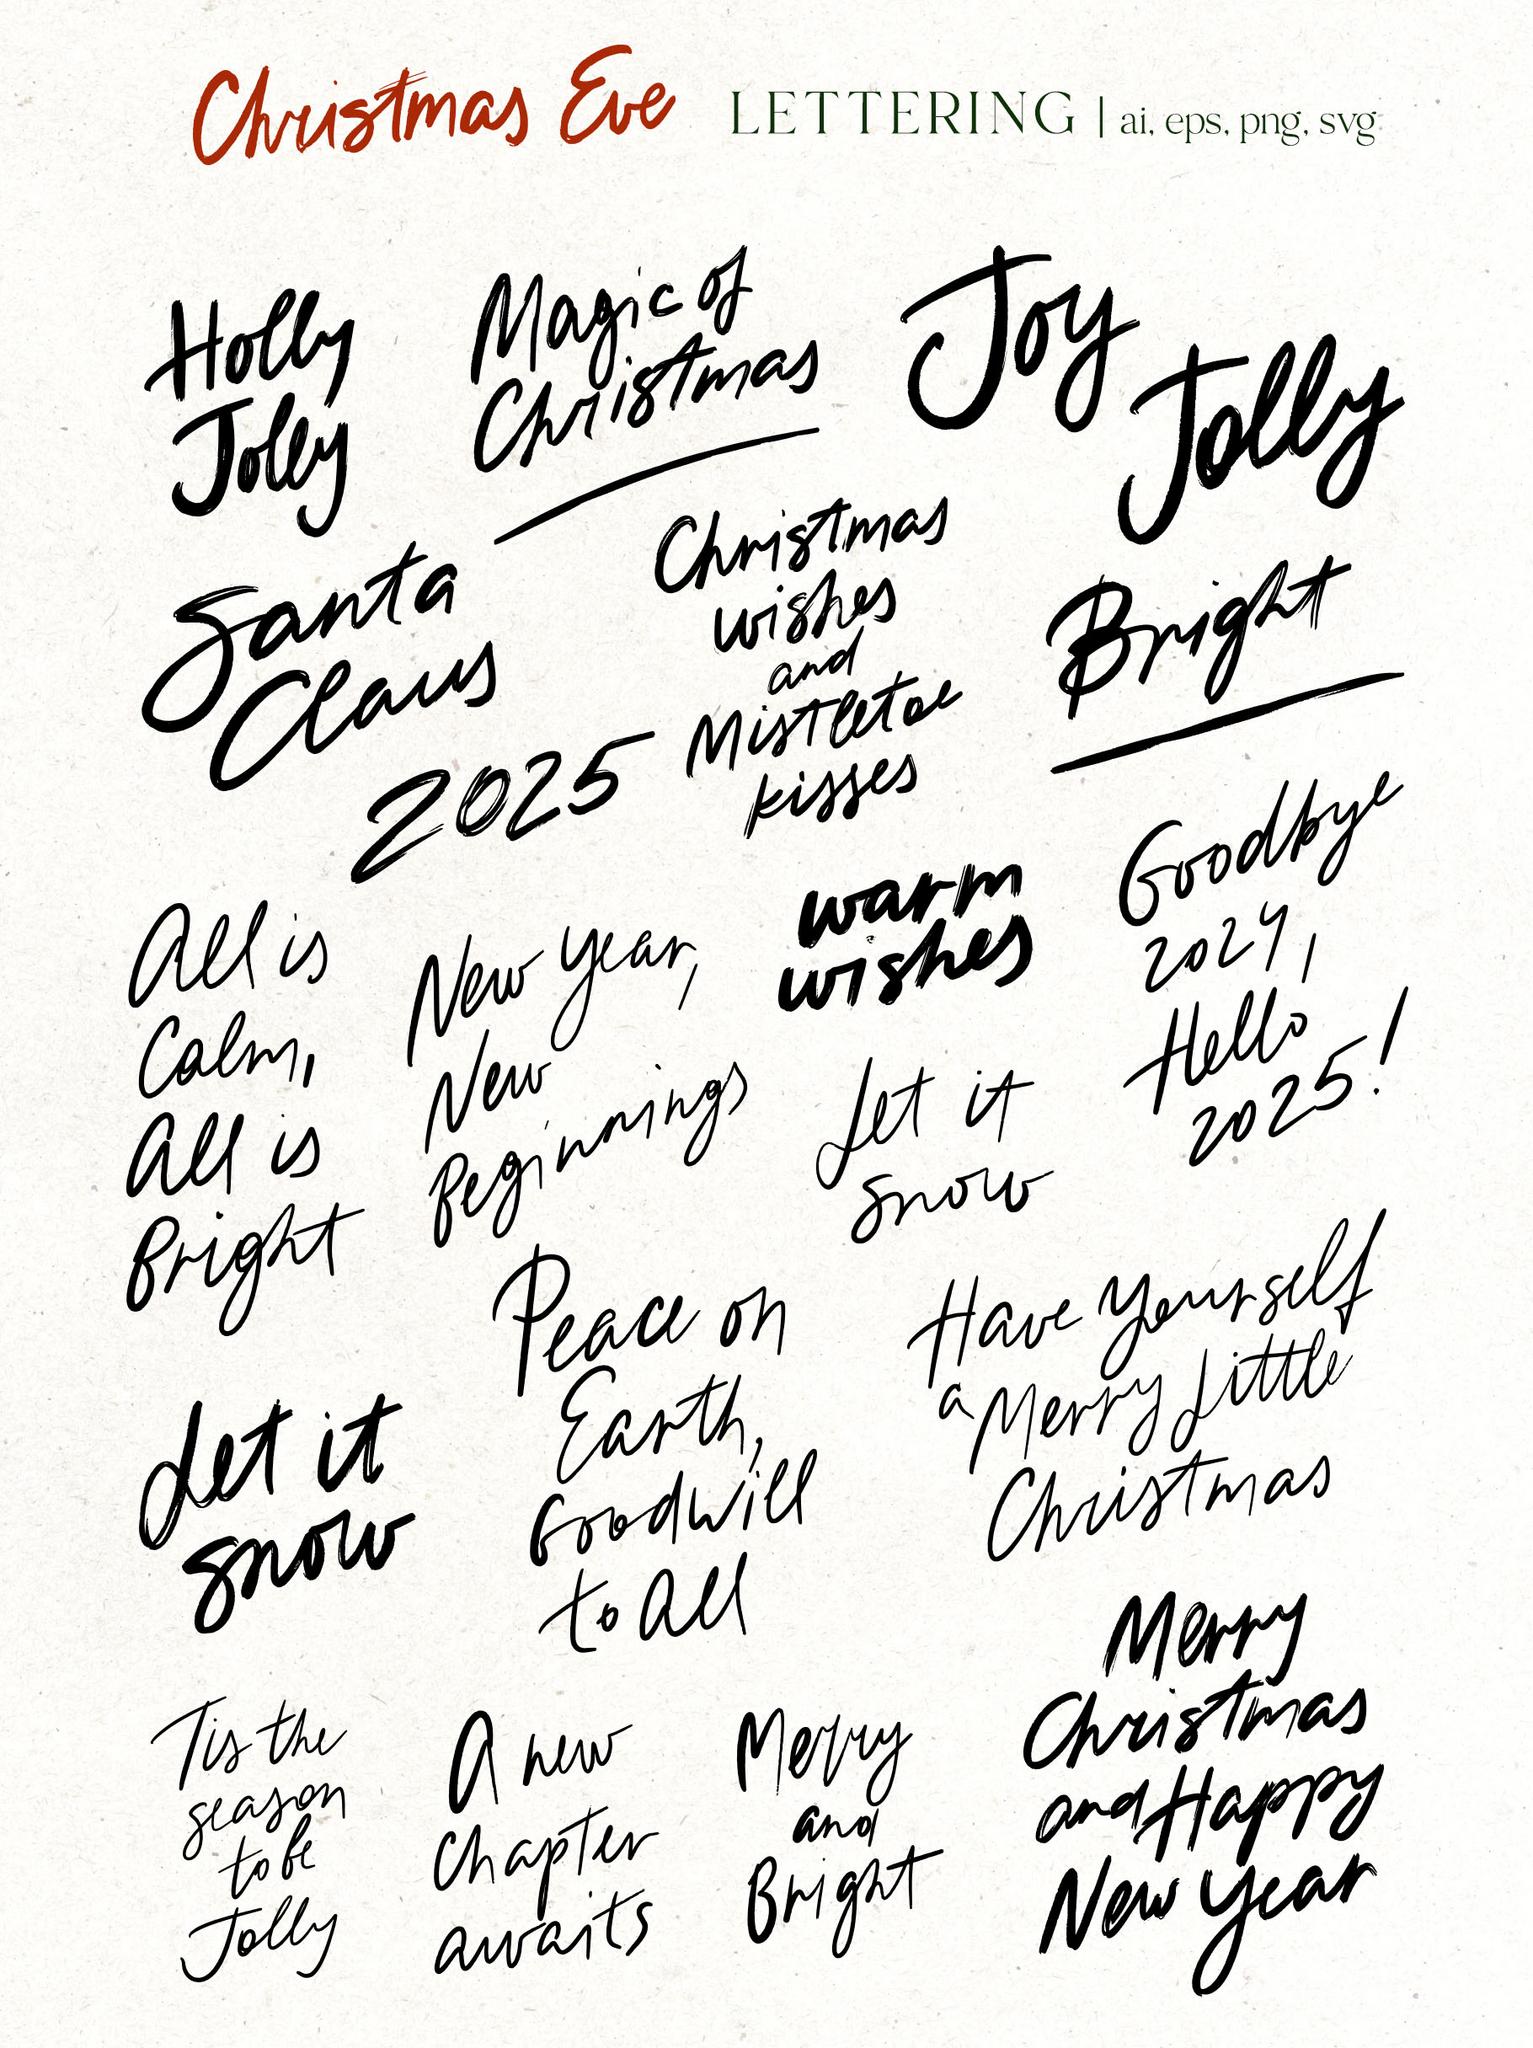 Christmas Eve LETTERING | ai, eps, png, svg
Holly
Jolly
Magic of
Christmas
Joy
Jolly
Santa
Claus
Christmas
wishes
and
Mistletoe
kisses
Bright
2025
All is
Calm,
All is
Bright
New Year,
New
Beginnings
warm
wishes
Goodbye
2024,
Hello
2025!
Let it
snow
Peace on
Earth,
Goodwill
to All
Have Yourself
a Merry Little
Christmas
Let it
snow
Tis the
season
to be
Jolly
A new
Chapter
awaits
Merry
and
Bright
Merry
Christmas
and Happy
New Year